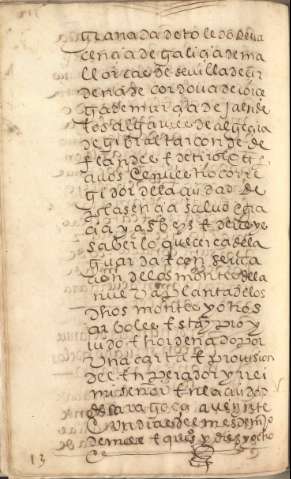 granada de toledo de va
cencia de galicia de ma
llorcas de sevilla de cer
deña de cordova de corce
ga de murcia de jaen de
los algarves de algezira
de gibraltar conde de
flandes e de tirol etc
a vos
gidor de la ciudad de
plasencia salud e gra
cia ya sabeis e deveys
saber lo que cerca de la
guarda e conserva
cion de los montes de la
nueva planta de los
dhos montes y otros
arboles esta pro y
ydo e hordenado por
una carta e provision
del enperador y rei
mi señor en la ciudad
de çaragoça a veynte
e un dias del mes de mayo
de mil e quios y diez y ocho
13